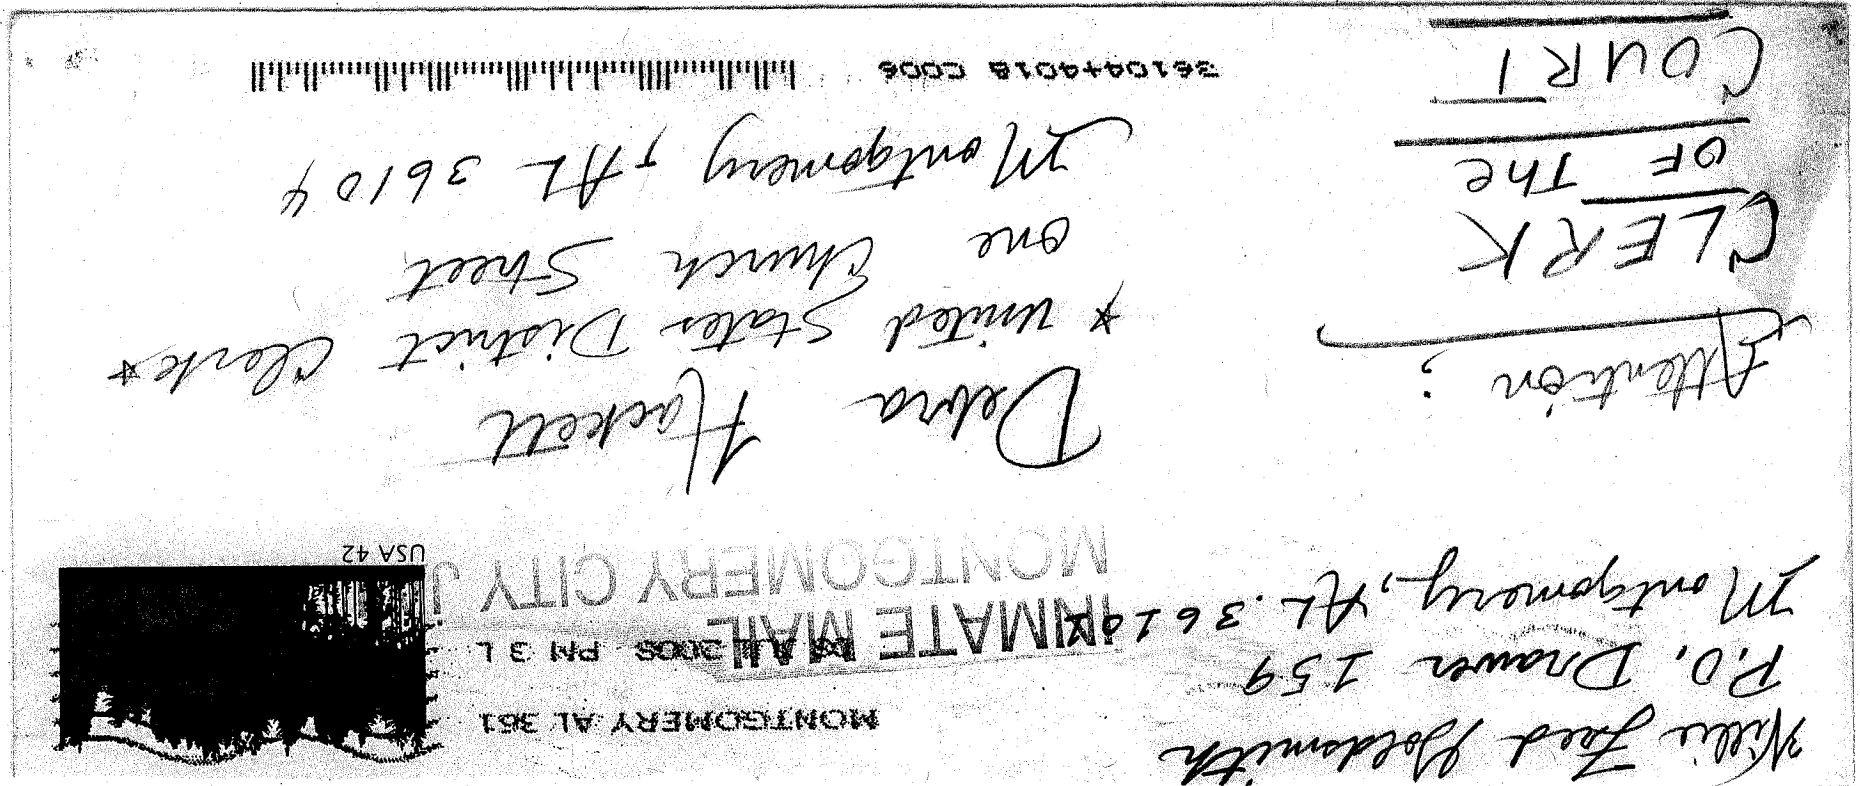 Willie Fred Goldsmith
P.O. Drawer 159
Montgomery, AL. 36101
MONTGOMERY AL 361
JUL 2008 PM 3 L
INMATE MAIL
MONTGOMERY CITY J
USA 42
Debra Hackett
* United States District Clerk *
One Church Street
Montgomery, AL 36104
Attention:
CLERK
OF The
COURT
36104+4018 C006